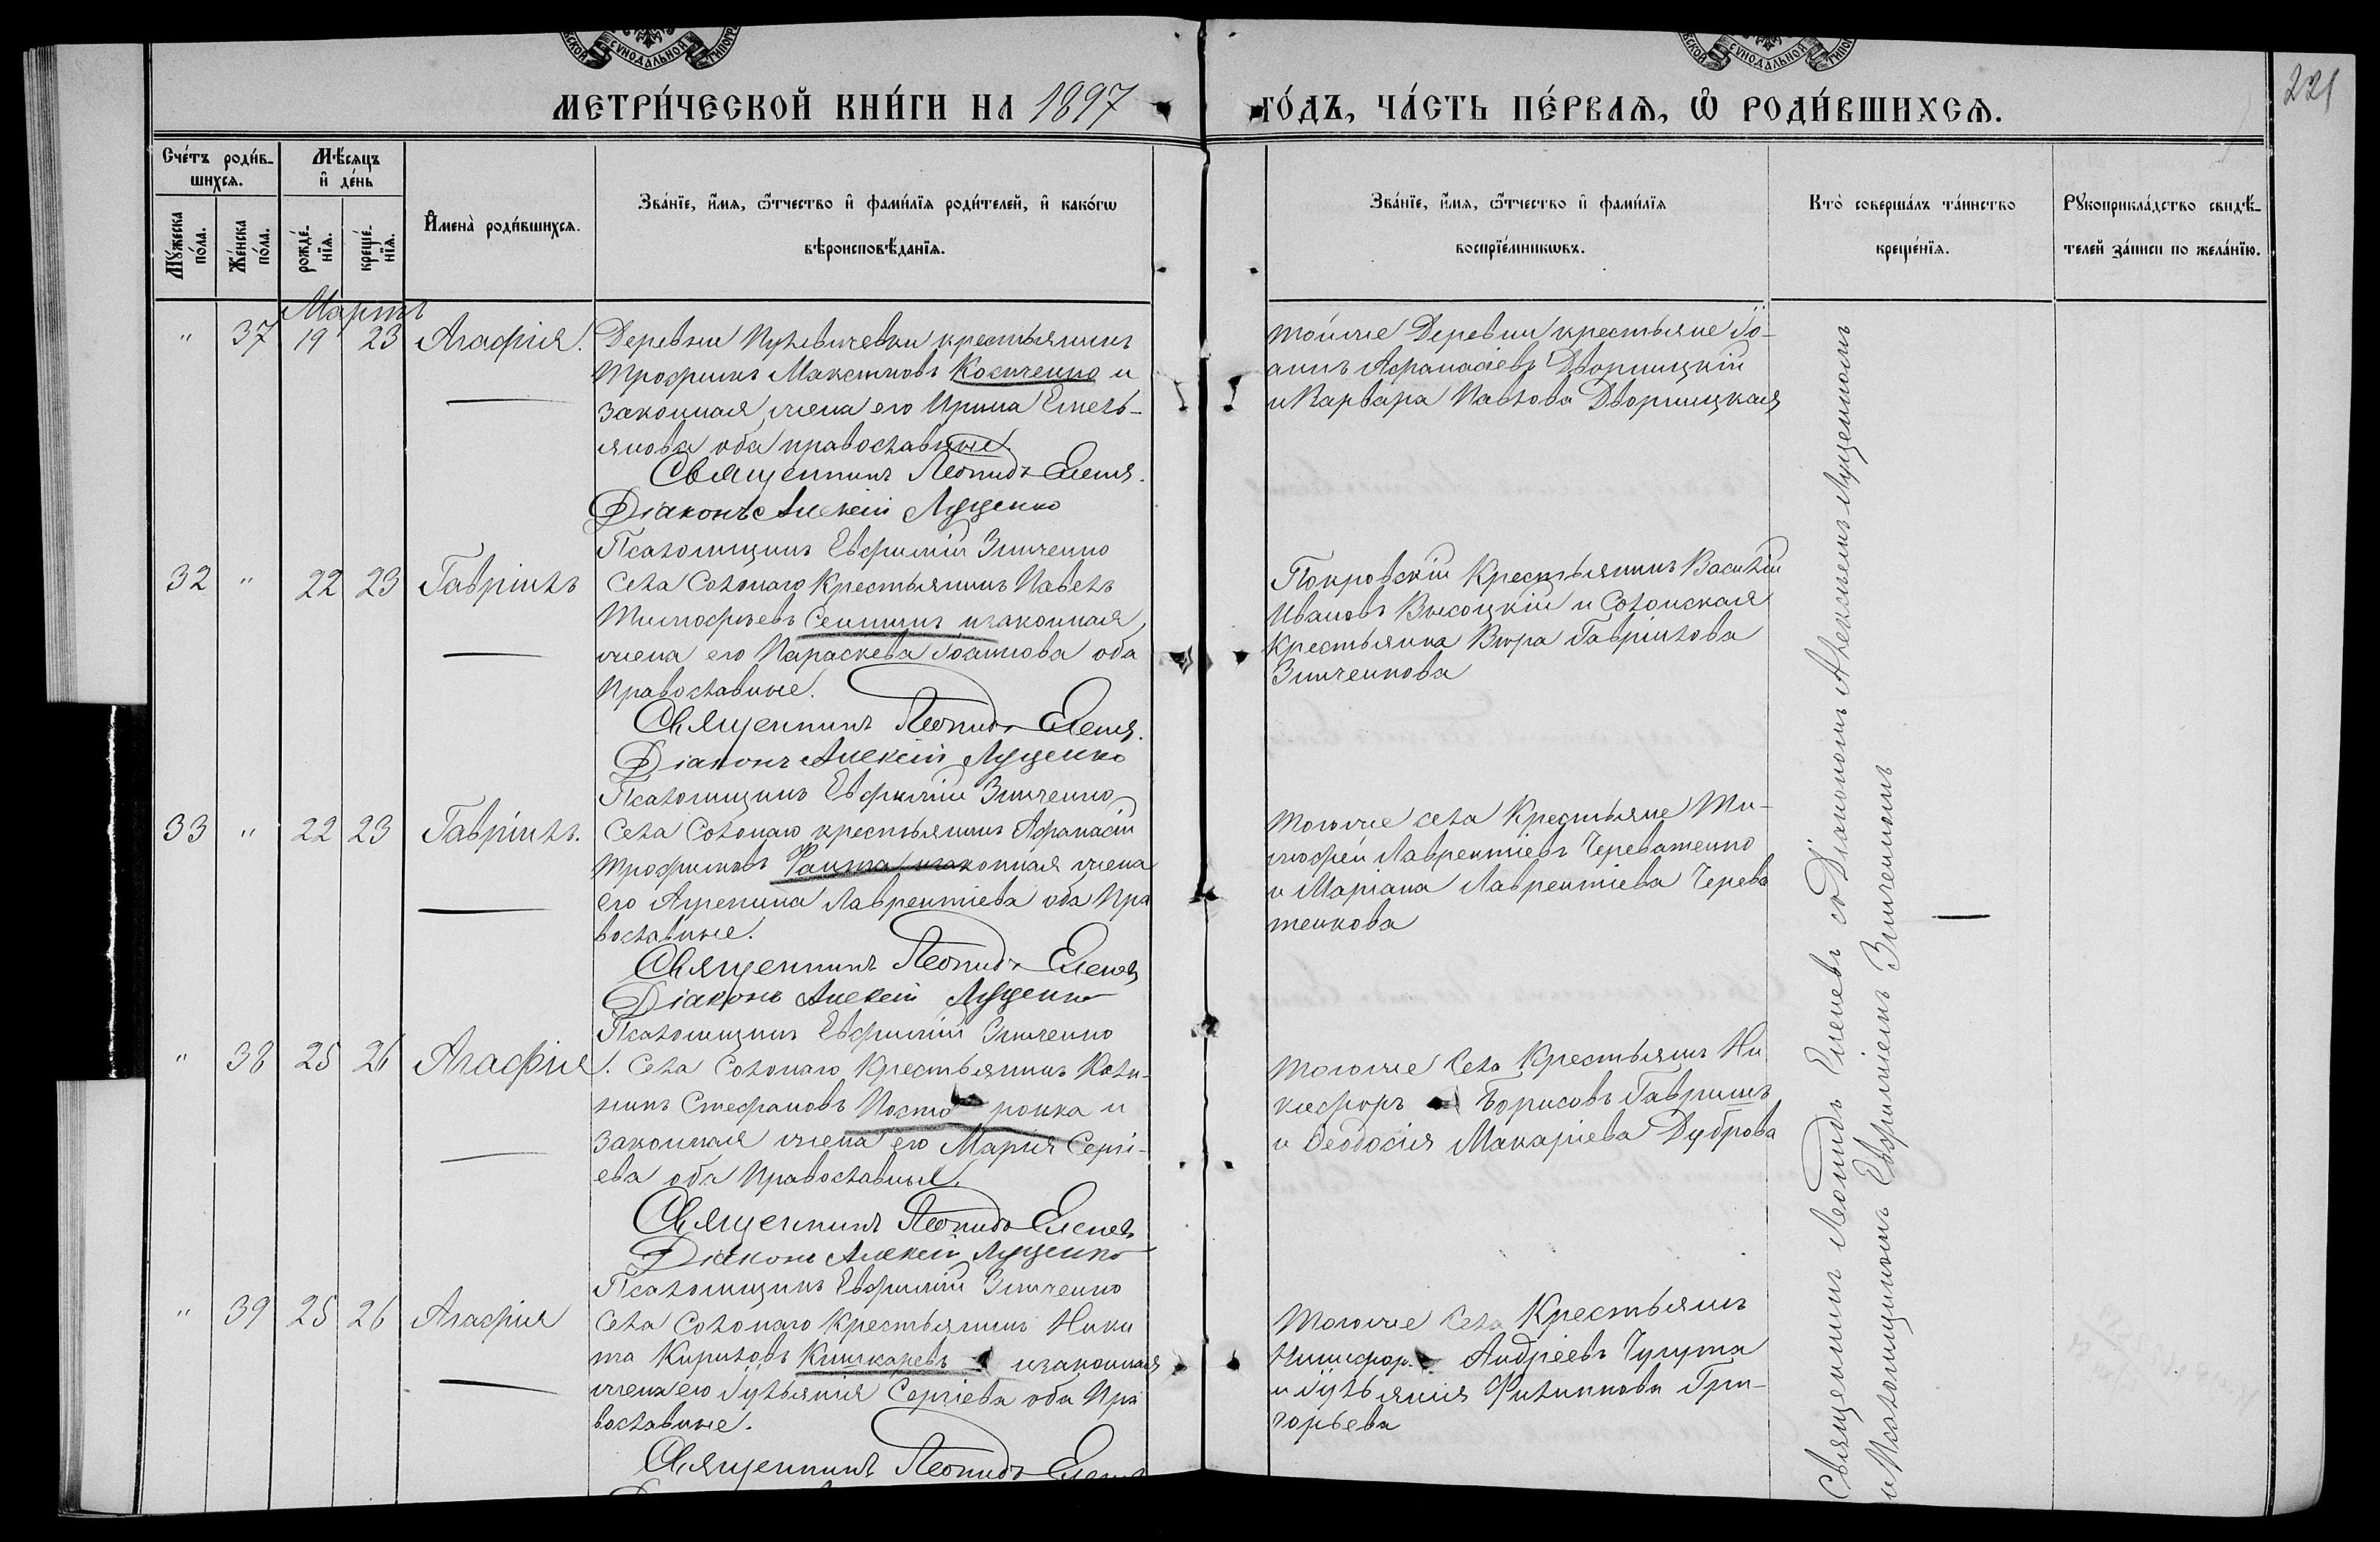 СУНОДАЛЬНОЙ
СУНОДАЛЬНОЙ
221
МЕТРИ́ЧЕСКОЙ КНИ́ГИ НА 1897
ГО́ДЪ, ЧА́СТЬ ПЕ́РВАѦ, Ѡ҆ РОДИ́ВШИХСѦ.
Сче́тъ роди́в-
шихсѧ.
Мꙋ́жеска по́ла.
Же́нска по́ла.
Мѣ́сѧцъ
и҆ де́нь
рожде́-нїѧ.
креще́-нїѧ.
И҆мена̀ роди́вшихсѧ.
Зва́нїе, и҆́мѧ, ѻ҆́тчество и҆ фами́лїѧ роди́телей, и҆ како́гѡ
вѣроисповѣ́данїѧ.
Зва́нїе, и҆́мѧ, ѻ҆́тчество и҆ фами́лїѧ
воспрїе́мникѡвъ.
Кто̀ соверша́лъ та́инство
креще́нїѧ.
Рꙋкоприкла́дство свидѣ́-
телей за́писи по жела́нїю.
Мартъ
" 37 19 23 Агафія.
Деревни крестьянинъ
Трофимъ Максимовъ Косиченко и
законная жена его Ирина Емель-
янова оба православные.
Священникъ Леонидъ Еленевъ.
Діаконъ Алексій Луценко
Псаломщикъ Евфимій Зинченко
тойже Деревни крестьяне Іо-
аннъ Афанасіевъ Дворницкій
и Варвара Павлова Дворницкая
32 " 22 23 Гавріилъ
Села Солонаго Крестьянинъ Павелъ
Тимофѣевъ изаконная
жена его Параскева Іоаннова оба
Православные.
Священникъ Леонидъ Еленевъ.
Діаконъ Алексій Луценко
Псаломщикъ Евфимій Зинченко
Покровскій Крестьянинъ Василій
Ивановъ Высоцкій и Солонская
Крестьянка Вѣра Гавріилова
Зинченкова
33 " 22 23 Гавріилъ.
Села Солонаго крестьянинъ Афанасій
Трофимовъ изаконная жена
его Агрепина Лаврентіева оба Пра
вославные.
Священникъ Леонидъ Еленевъ
Діаконъ Алексій Луценко
Псаломщикъ Евфимій Зинченко
Тогоже села Крестьяне Ти-
мофей Лаврентіевъ Череватенко
и Маріана Лаврентіева Черева
тенкова
" 38 25 26 Агафія.
Села Солонаго Крестьянинъ Кали-
никъ Стефановъ Посторонка и
законная жена его Марія Сергі-
ева оба Православные.
Священникъ Леонидъ Еленевъ
Діаконъ Алексій Луценко
Псаломщикъ Евфимій Зинченко
Тогоже Села Крестьянинъ Ни
кифоръ Борисовъ Гавришъ
и Феодосія Макаріева Дуброва
" 39 25 26 Агафія
Села Солонаго Крестьянинъ Ники
та Кириловъ Кишкаревъ изаконная
жена его Іуліянія Сергіева оба Пра
вославные.
Священникъ Леонидъ Еленевъ
Тогоже Села Крестьянинъ
Никифоръ Андреевъ Чугута
и Іуліянія Филиппова Гри-
горьева
Священникъ Леонидъ Еленевъ съ Діакономъ Алексѣемъ Луценкомъ
и Псаломщикомъ Евфиміемъ Зинченкомъ